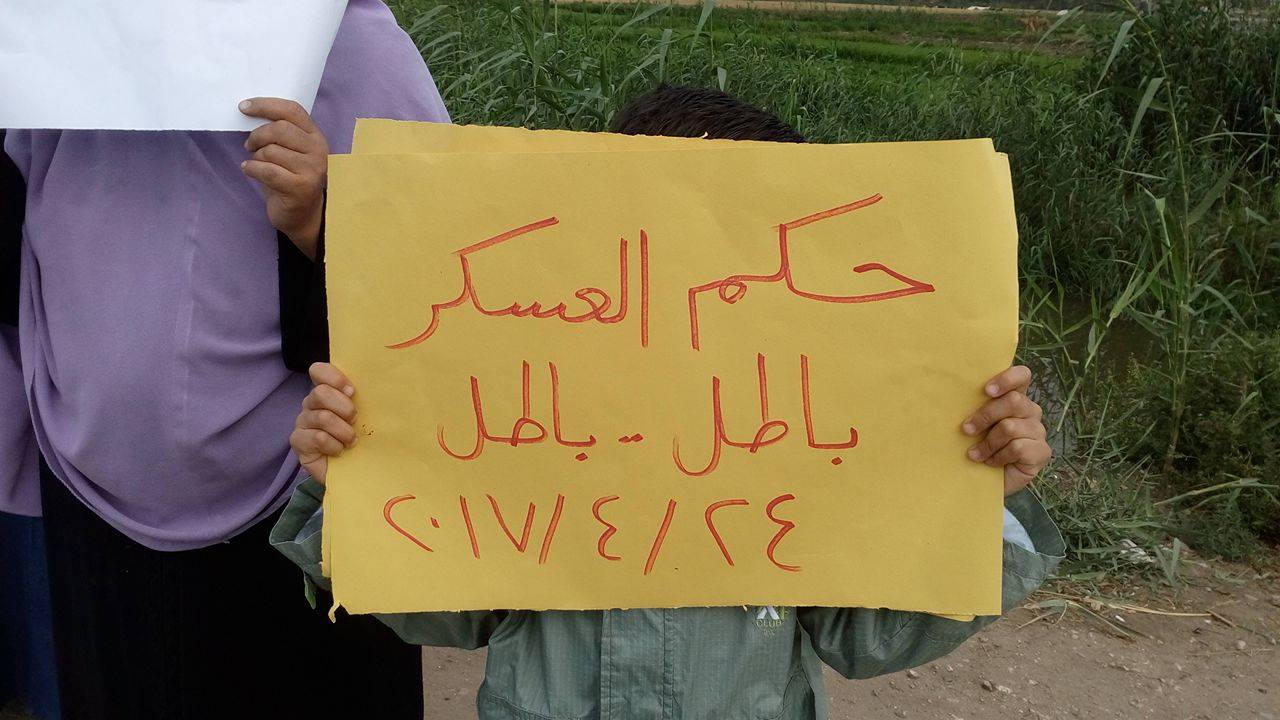 حكم العسكر
باطل - باطل
٢٠١٧/٤/٢٤
CLUB